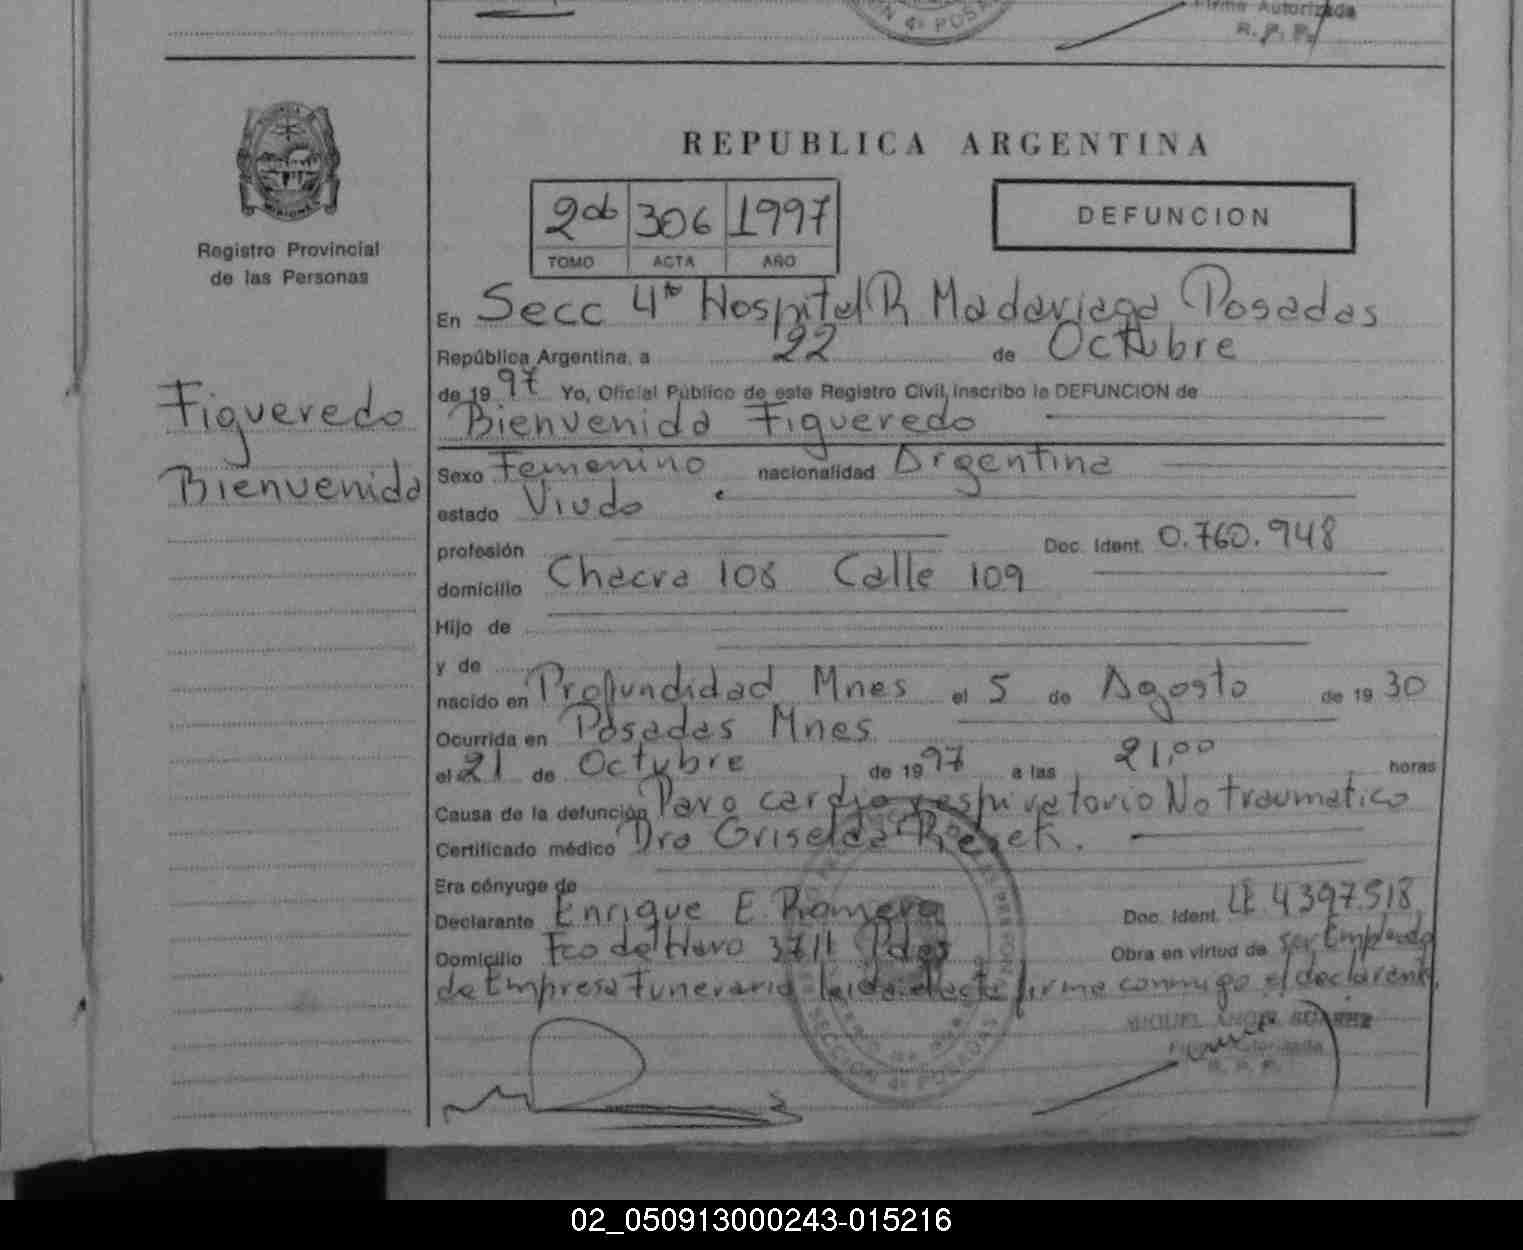 Firma Autorizada
R. P. P.
N 4ª POSA
REPUBLICA ARGENTINA
Registro Provincial
de las Personas
2do 306 1997
TOMO ACTA AÑO
DEFUNCION
En Secc 4ta Hospital R Madariaga Posadas
República Argentina, a 22 de Octubre
de 1997 Yo, Oficial Público de este Registro Civil, inscribo la DEFUNCION de
Figueredo
Bienvenida
Bienvenida Figueredo
Sexo Femenino nacionalidad Argentina
estado Viuda
profesión Doc. Ident. 0.760.948
domicilio Chacra 108 Calle 109
Hijo de
y de
nacido en Profundidad Mnes el 5 de Agosto de 1930
Ocurrida en Posadas Mnes
el 21 de Octubre de 1997 a las 21,00 horas
Causa de la defunción Paro cardio respiratorio No traumatico
Certificado médico Dra Griselda
Era cónyuge de
Declarante Enrique E. Romero Doc. Ident. LE 4397.518
Domicilio Fco de Haro 3711 Pdas Obra en virtud de ser Empleado
de Empresa Funeraria leida el acta firma conmigo el declarante.
MIGUEL ANGEL SUAREZ
Firma Autorizada
R. P. P.
SECCION 4ª POSADAS
02_050913000243-015216